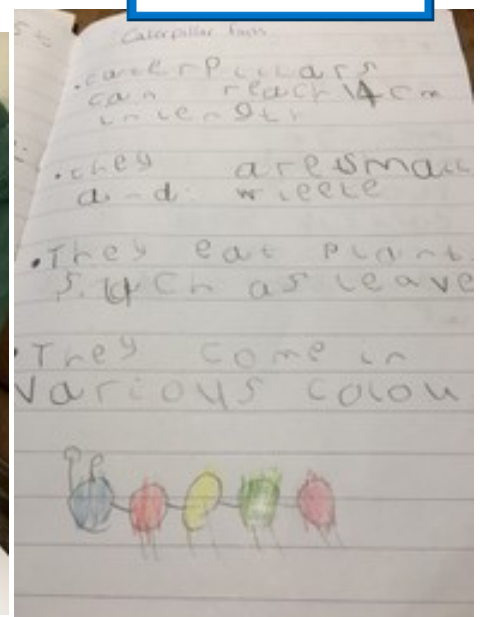 Caterpillar facts
• caterpillars
can reach 14cm
in length
• they are small
and
• They eat plant
such as leave
• They come in
various colou